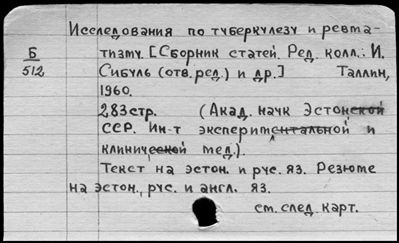 Исследования по туберкулезу и ревма-
Б
512
тизму. [Сборник статей. Ред. колл.: И.
Сибуль (отв. ред.) и др.] Таллин,
1960.
283 стр. (Акад. наук Эстонской
ССР. Ин-т экспериментальной и
клинической мед.).
Текст на эстон. и рус. яз. Резюме
на эстон., рус. и англ. яз.
см. след. карт.